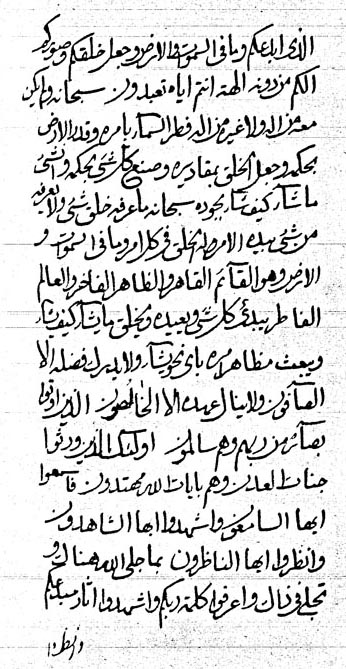 الذى ابدعكم وما فى السموات والارض وجعل خلقكم وصوركم
الكم من دونه الهة انتم اياه تعبدون سبحانه ولم يكن
معه من اله ولا غيره من اله فطر السماء بامره وقدر الارض
بحكمه وجعل الخلق بمقاديره وصنع كل شئ بحكمه وانشئ
ما شاء كيف شاء بجوده سبحانه ما عرفه خلق شئ ولا يعرفه
من شئ بيده الامر وله الخلق فى كل امر وما فى السموات و
الارض وهو القائم القاهر والظاهر الفاخر والعالم
الفاطر يبدئ كل شئ ويعيده ويخلق ما يشاء كيف شاء
ويبعث مظاهر امره باى نحو يشاء ولا يدرك فضله الا
الصافون ولا ينال عهده الا الخالصون الذين اوتوا
بصائر من ربهم وهم سالمون اولئك الذين ورثوا
جنات العدن وهم بايات الله مهتدون فاسمعوا
ايها السامعون واشهدوا ايها الشاهدون
وانظروا ايها الناظرون بما جلى الله هناك و
تجلى فى ذاك واعرفوا كلمة ربكم واشهدوا اثار مبدعكم
وانظروا